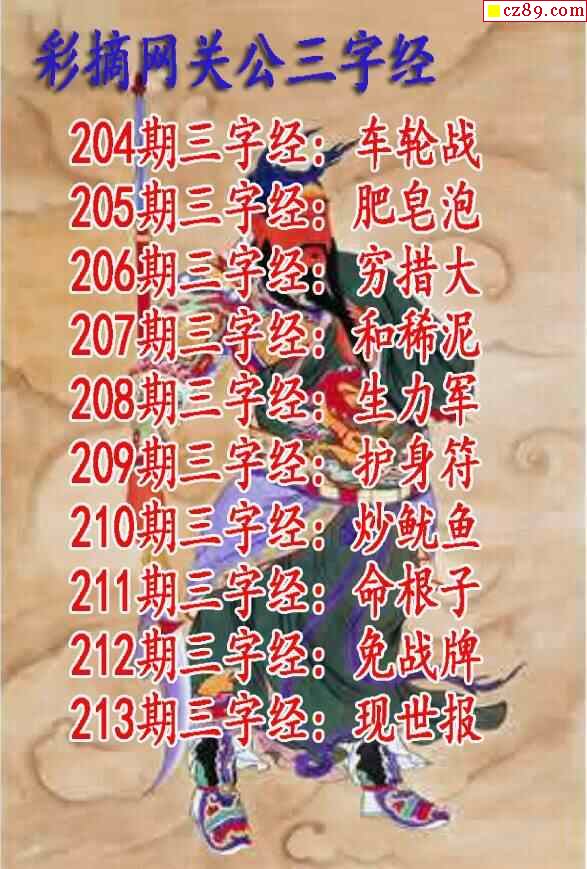 cz89.com
彩摘网关公三字经
204期三字经：车轮战
205期三字经：肥皂泡
206期三字经：穷措大
207期三字经：和稀泥
208期三字经：生力军
209期三字经：护身符
210期三字经：炒鱿鱼
211期三字经：命根子
212期三字经：免战牌
213期三字经：现世报